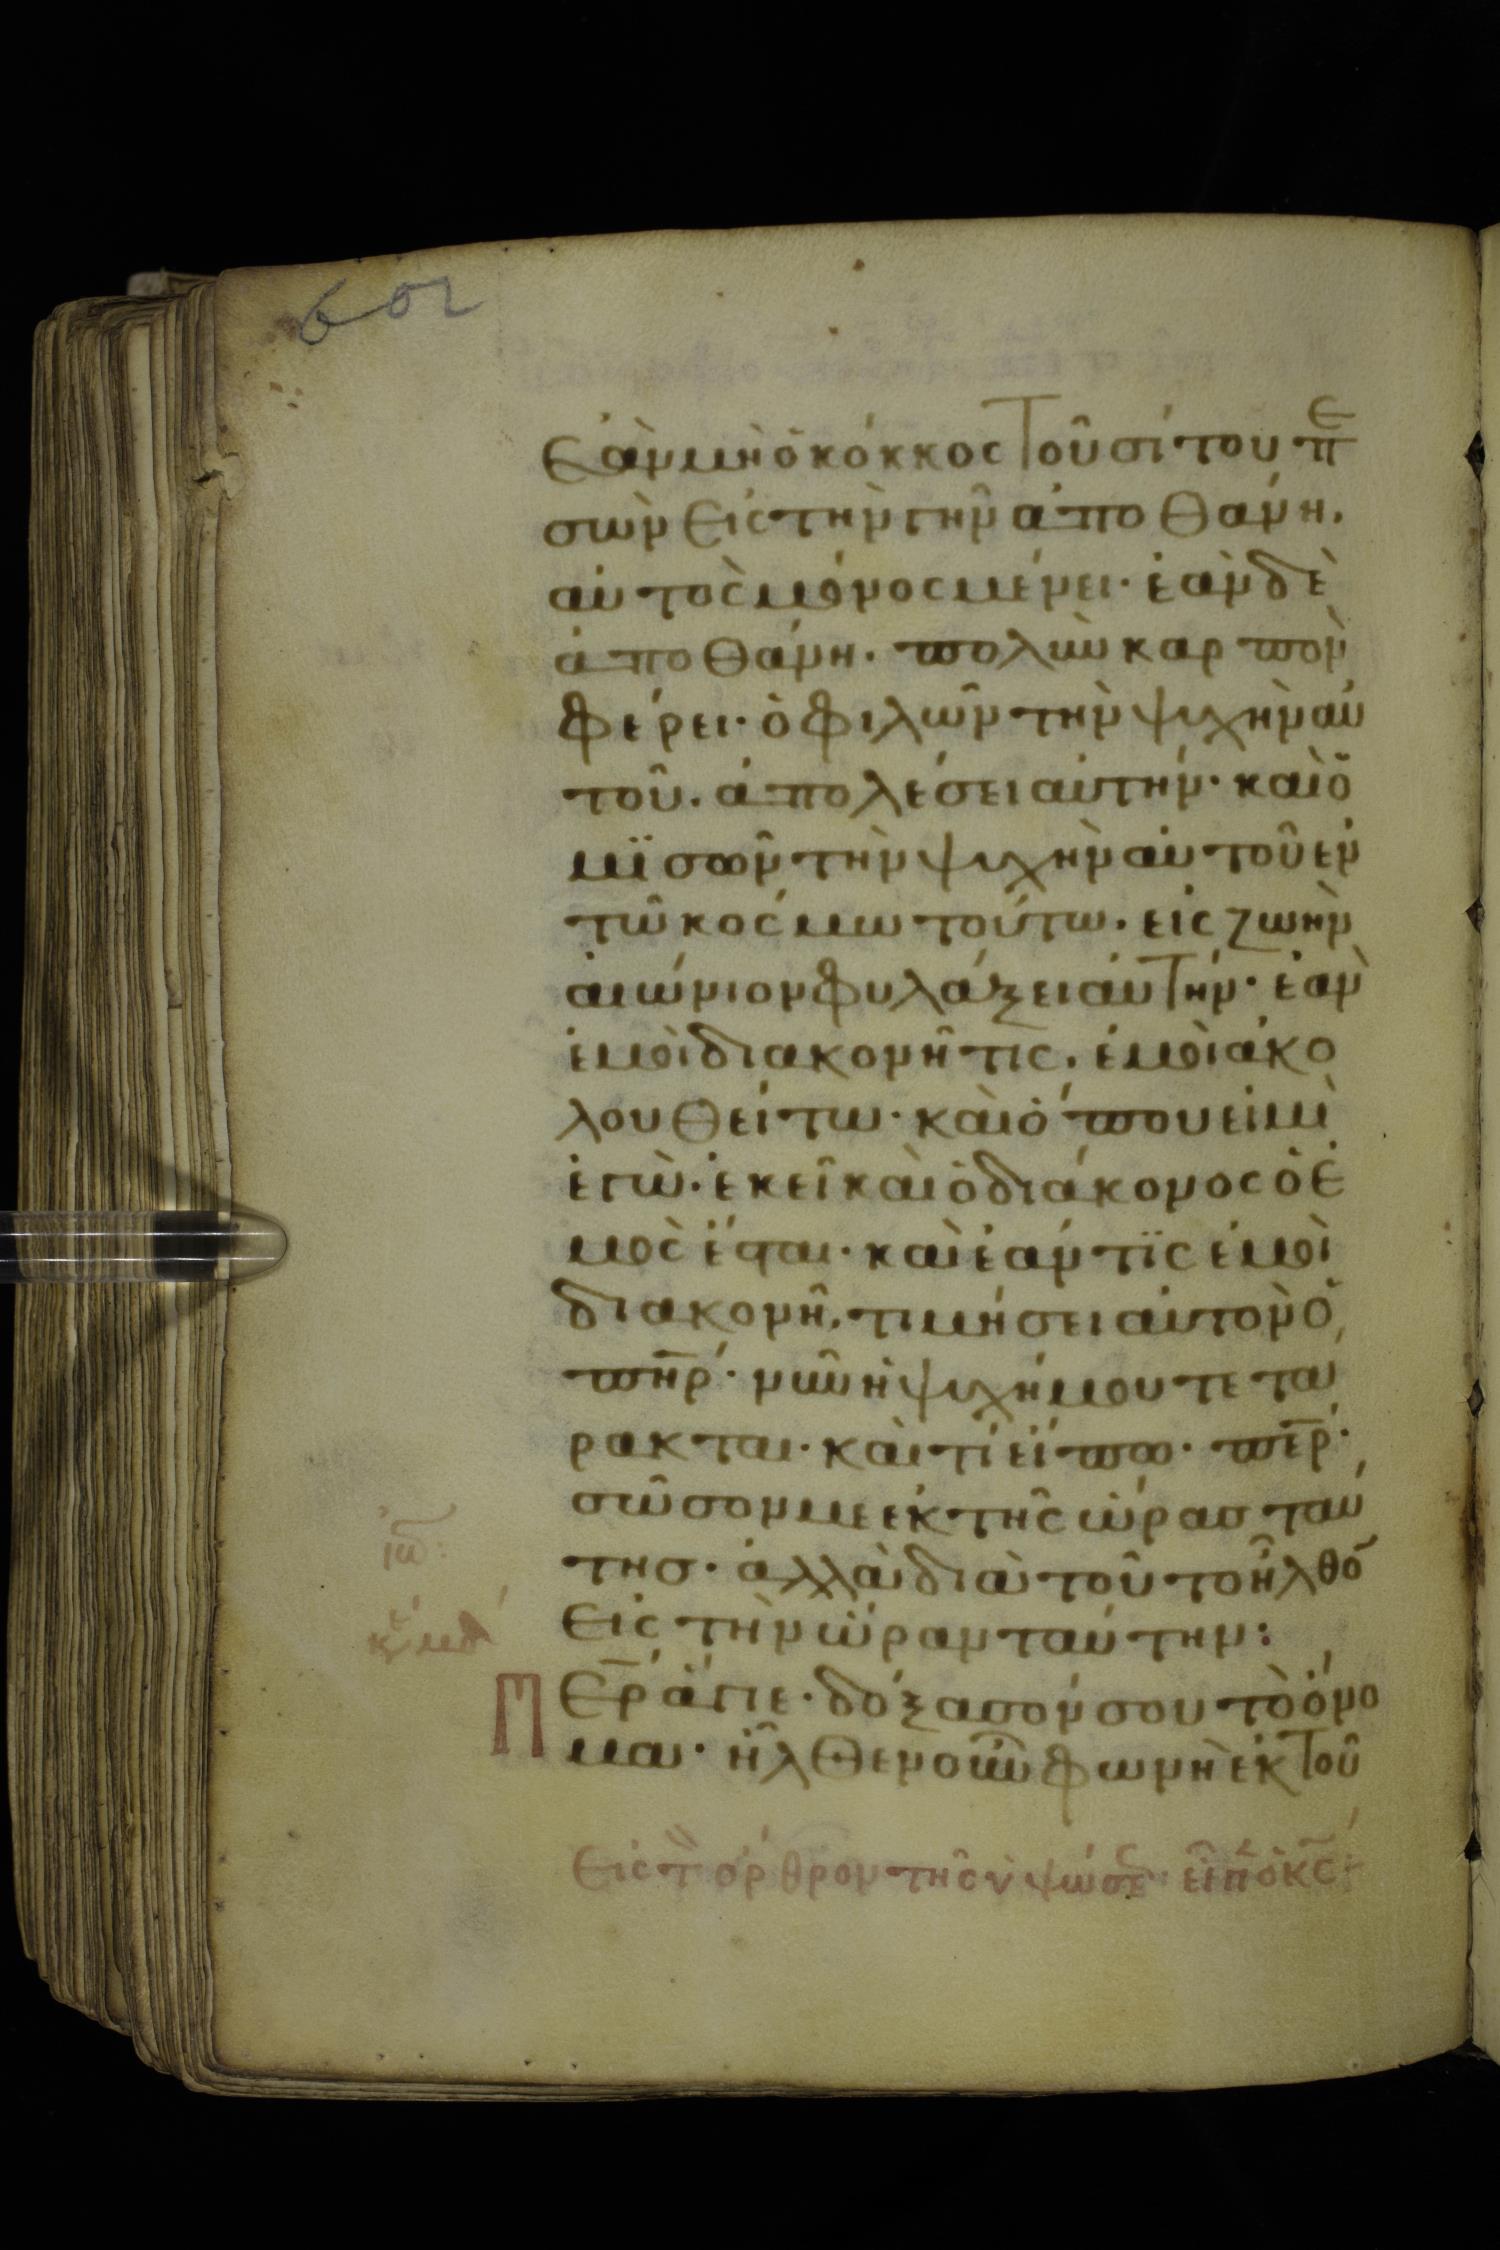 602
ἐὰν μὴ ὁ κόκκος τοῦ σίτου πε
σὼν εἰς τὴν γῆν ἀποθάνη.
αὐτὸς μόνος μένει· ἐὰν δὲ
ἀποθάνη. πολὺν καρπὸν
φέρει· ὁ φιλῶν τὴν ψυχὴν αὐ
τοῦ. ἀπολέσει αὐτήν· καὶ ὁ
μϊσῶν τὴν ψυχὴν αὐτοῦ ἐν
τῶ κόσμω τούτω. εἰς ζωὴν
αἰώνιον φυλάξει αὐτήν· ἐὰν
ἐμοὶ διακονῆ τίς. ἐμοὶ ἀκο
λουθείτω· καὶ ὅπου εἰμὶ
ἐγὼ· ἐκεῖ καὶ ὁ διάκονος ὁ ἐ
μὸς ἔσται· καὶ ἐάν τϊς ἐμοὶ
διακονῆ, τιμήσει αὐτὸν ὁ
πη̅ρ· νῦν ἡ ψυχή μου τετά
ρακται· καὶ τί εἴπω· πε̅ρ·
σῶσον με ἐκ τῆς ὥρασ ταύ
τησ· ἀλλὰ διὰ τοῦτο ἦλθο̅
εἰς τὴν ὥραν ταύτην:
Πε̅ρ ἅγιε· δόξασόν σου τὸ ὄνο
μα· ἦλθεν οὖν φωνὴ ἐκ τοῦ
Εἰς τ ὄρθρον τῆς ὑψώσε εἶπ ὁ κ̅ς